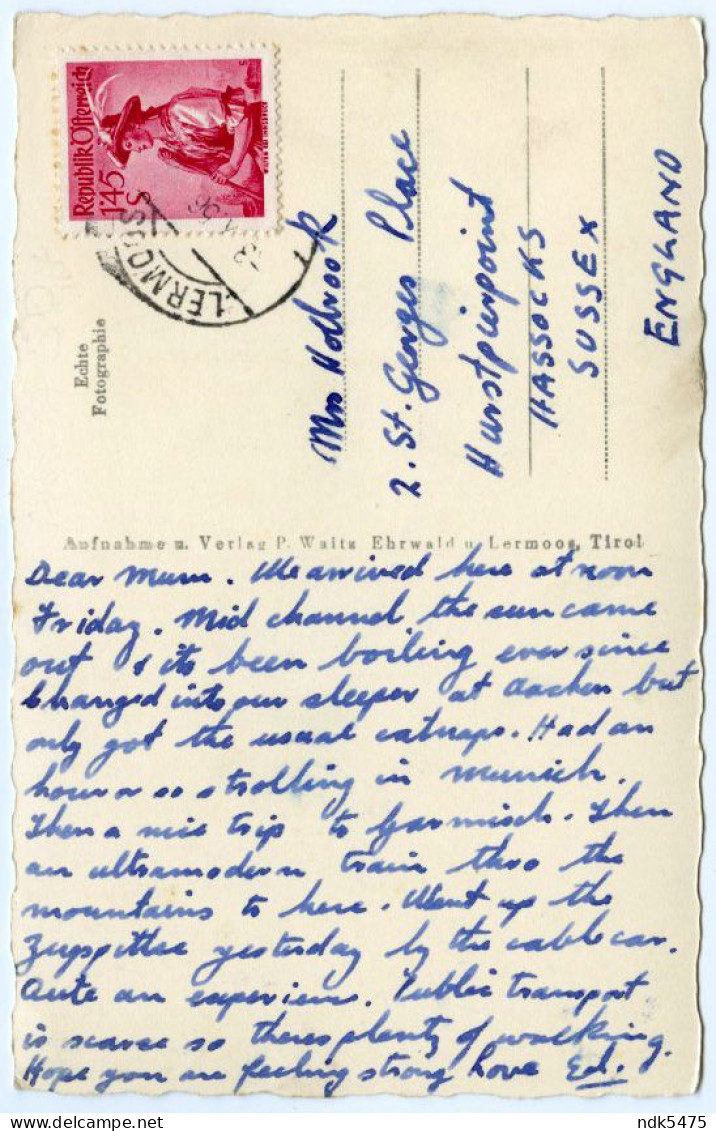 Republik Österreich
1'45
S
LERMOOS
Echte
Fotographie
Mrs Holbrook
2. St. Georges Place
Hurstpierpoint
HASSOCKS
SUSSEX
ENGLAND
Aufnahme u. Verlag P. Waitz Ehrwald u. Lermoos, Tirol
Dear Mum. We arrived here at noon
Friday. Mid channel the sun came
out & its been boiling ever since
Changed into our sleeper at Aachen but
only got the usual catnaps. Had an
hour or so strolling in Munich.
Then a nice trip to Garmisch. Then
an ultramodern train thro the
mountains to here. Went up the
Zugspitze yesterday by the cable car.
Quite an experience. Public transport
is scarce so theres plenty of walking.
Hope you are feeling strong Love Ed.
ndk5475
Delcampe.net